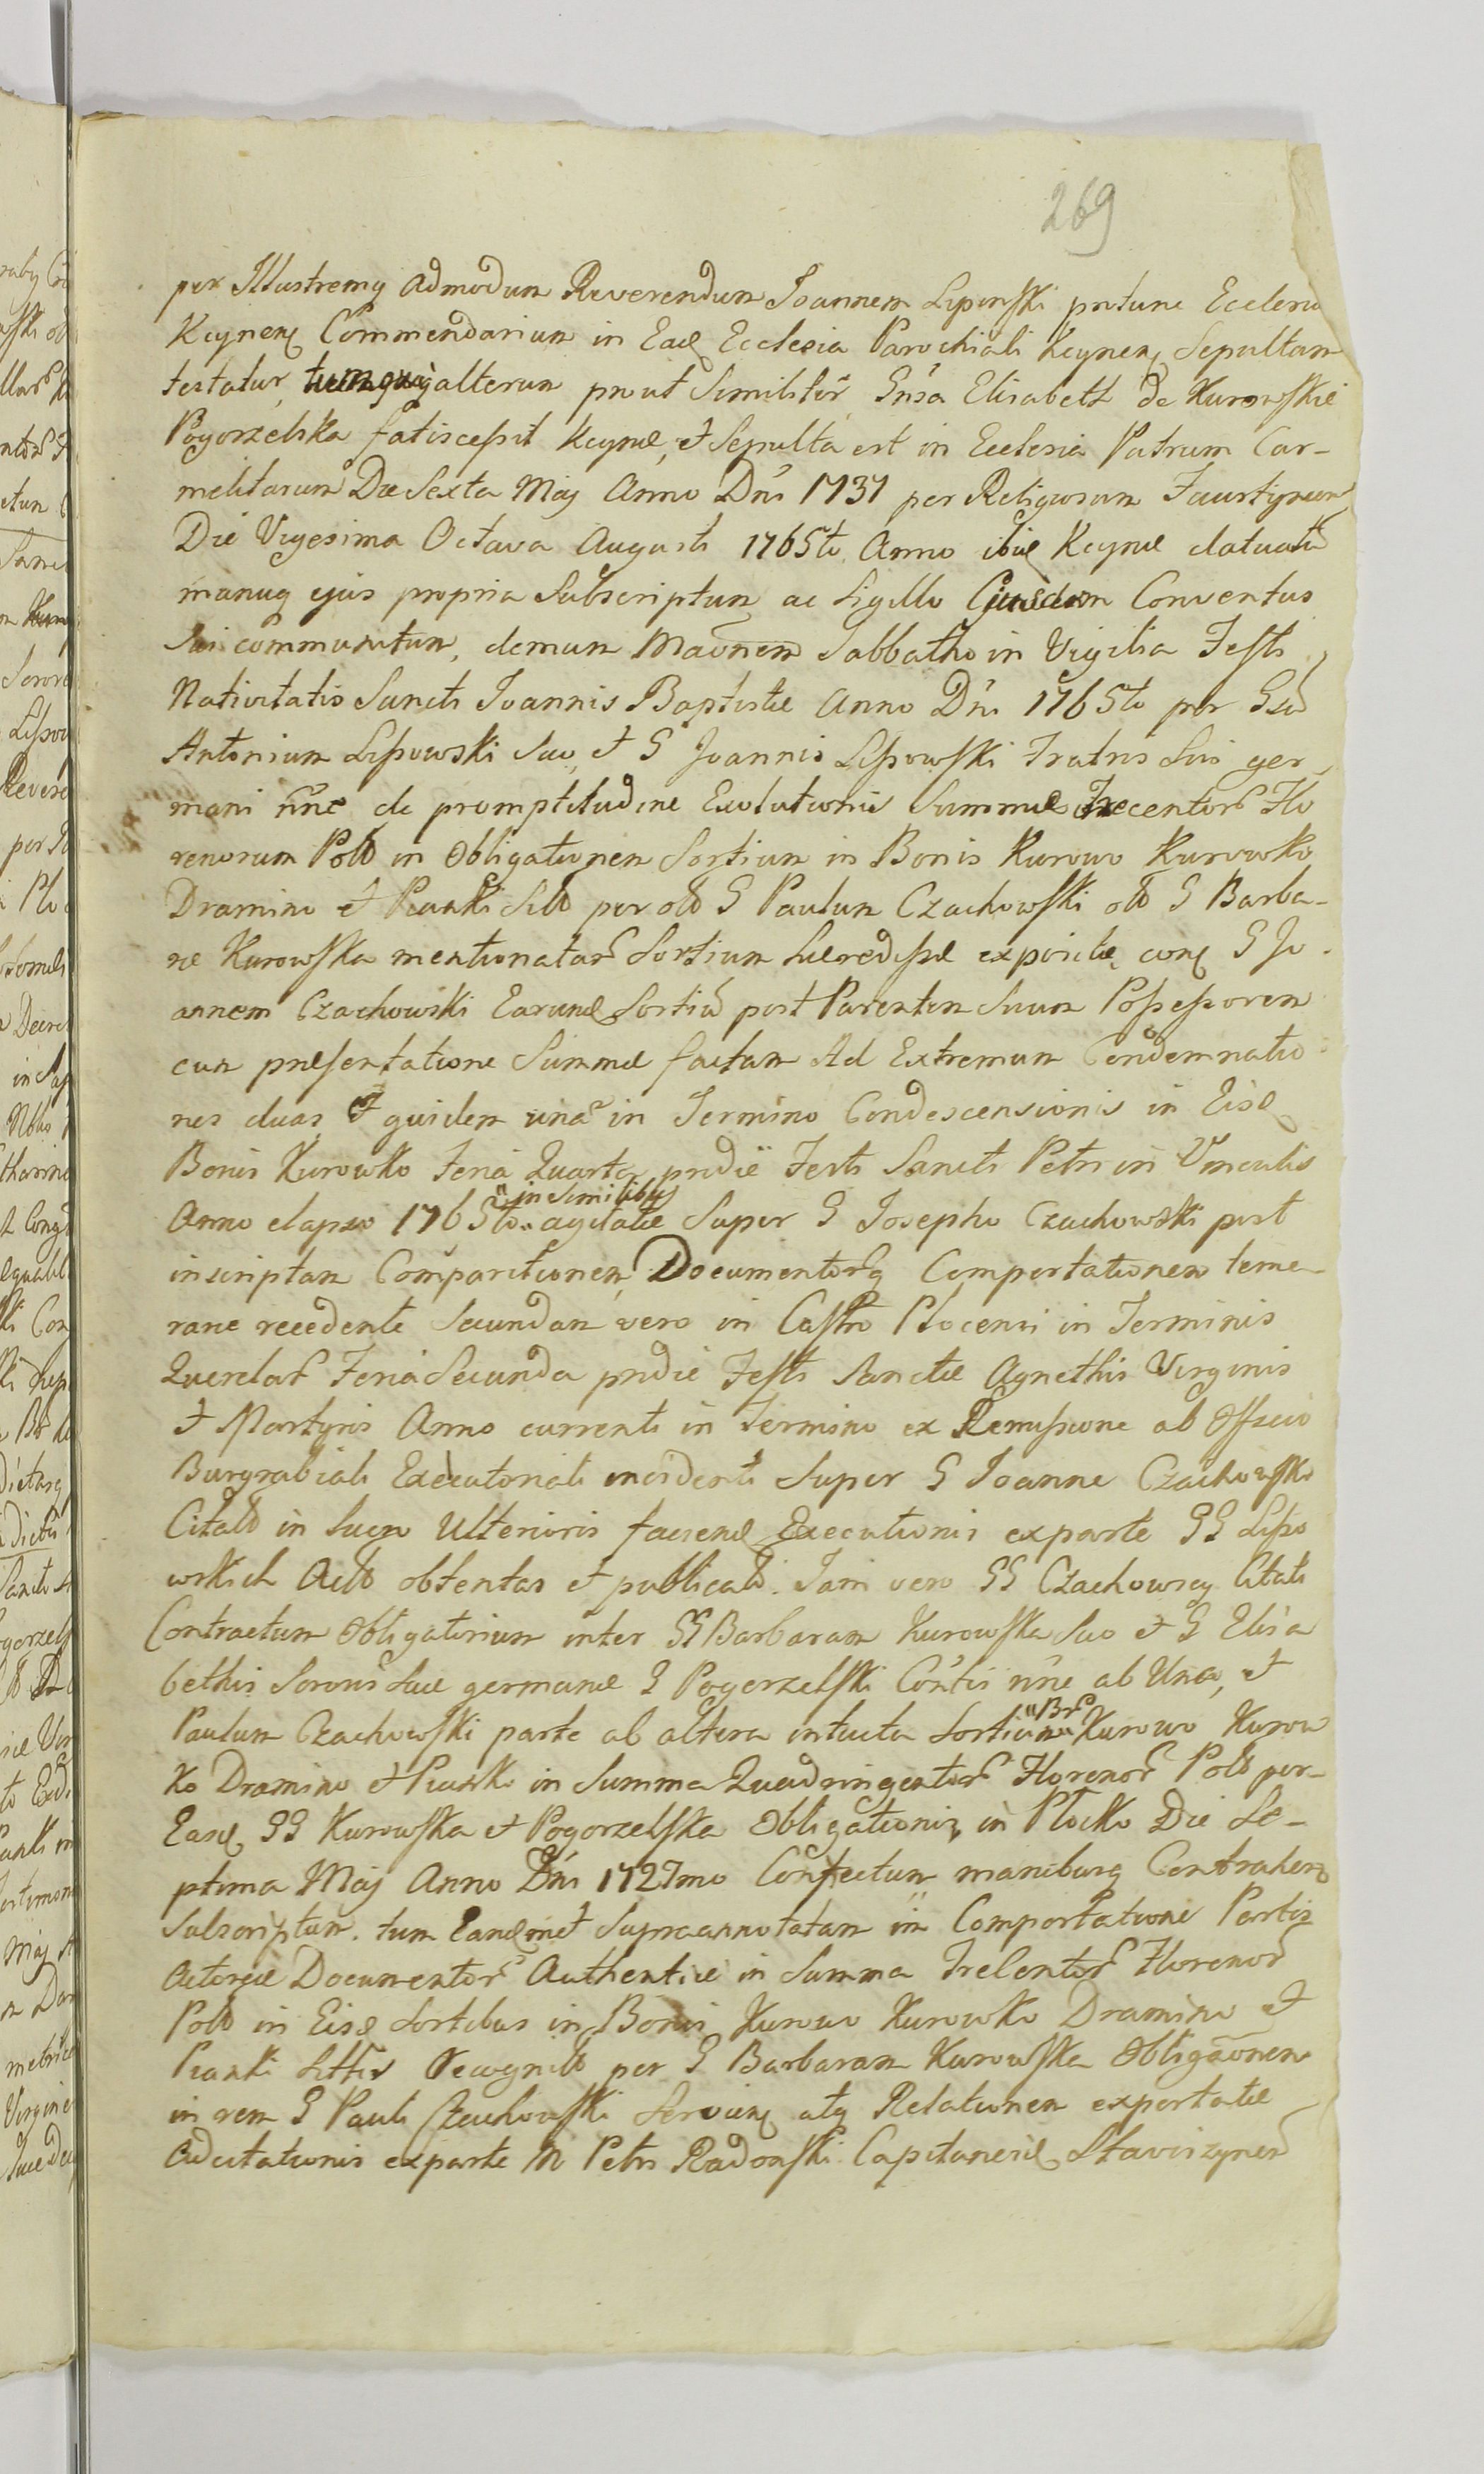 269
per Illustremq Admodum Reverendum Joannem Lipinski protunc Ecclesiæ
Kcynens Commendarium in Ead Ecclesia Parochiali Kcynens Sepultam
testatur, alterum prout Similiter Gnsa Elisabeth de Kurowskie
Pogorzelska fatiscessit Kcyniæ, et Sepulta est in Ecclesia Patrum Car-
melitarum Die Sexta Maij Anno Dni 1737 per Religiosum Faustynum
Die Vigesima Octava Augusti 1765to Anno ibid Kcyniæ datuatu
manuq ejus propria Subscriptum ac Sigillo Ejusdem Conventus
Sui communitum, demum Maonem Sabbatho in Vigilia Festi
Nativitatis Sancti Joannis Baptistæ Anno Dni 1765to per Gsu
Antonium Lipowski Suo, et G Joannis Lipowski Fratris Sui ger-
mani nne de promptitudine Exolutionis Summæ Trecentor Flo
renorum Pold in Obligationem Sortium in Bonis Kurowo Kurowko
Dramino et Piaski Sitt per old G Paulum Czachowski old G Barba-
ræ Kurowska mentionatar Sortium Hæredissæ expositæ, conq G Jo-
annem Czachowski Earund Sortiu post Parentem Suum Possessorem
cum præsentatione Summæ factam Ad Extremum Condemnatio
nes duas et quidem una in Termino Condescensionis in Eisd
Bonis Kurowko Feria Quarta pridie Festi Sancti Petri in Vinculis
Anno elapso 1765to "in Similibus" agitatæ Super G Josepho Czachowski post
inscriptam Comparitionem, Documentorq Comportationem teme-
rarie recedente Secundam vero in Castro Plocensi in Terminis
Querelar Feria Secunda pridie Festi Sanctæ Agnethis Virginis
et Martyris Anno currenti in Termino ex Remissione ab Officio
Burgrabiali Executoriali incidenti Super G Joanne Czachowski
Citato in lucro Ulterioris faciend Executionis exparte GG Lipo
wskich Actt obtentas et publicatt. Jam vero GG Czachowscy Citati
Contractum Obligatorium inter GG Barbaram Kurowska Suo et G Elisa
bethis Sororis Suæ germanæ G Pogorzelski Contis nne ab Una, et
Paulum Czachowski parte ab altera intuitu Sortium "Br" Kurowo Kurow
ko Dramino et Piaski in Summa Quadringentor Florenor Pold per-
Easd GG Kurowska et Pogorzelska Obligationis in Plocko Die Se-
ptima Maij Anno Dni 1727mo Confectum manibusq Contrahens
Subscriptum. tum Eandmet Supraannotatam in Comportatione Partis
Actoreæ Documentor Authentice in Summa Trecentor Florenor
Pold in Eisd Sortibus in Bonis Kurowo Kurowko Dramino et
Piaski Sittis Recognitt per G Barbaram Kurowska Obligaonem
in rem G Pauli Czachowski Serviens atq Relationem exportatæ
Adcitationis exparte M Petri Radonski Capitanerid Stawiszynen